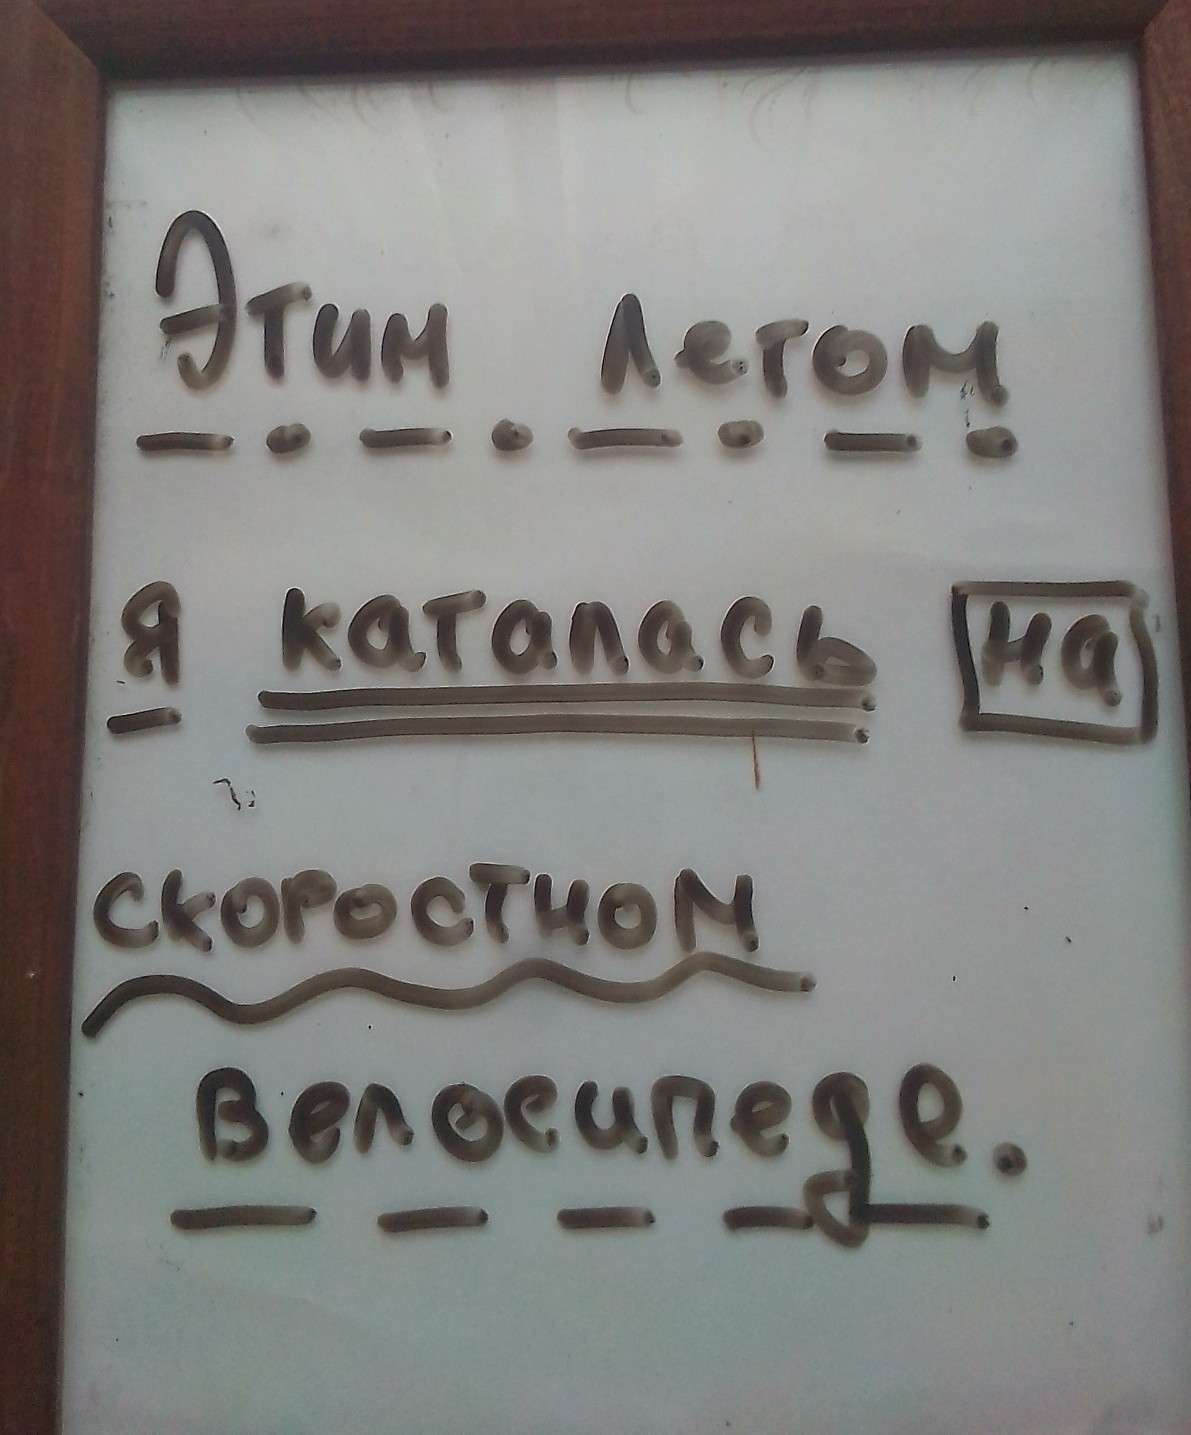 Этим летом
я каталась на
скоростном
велосипеде.